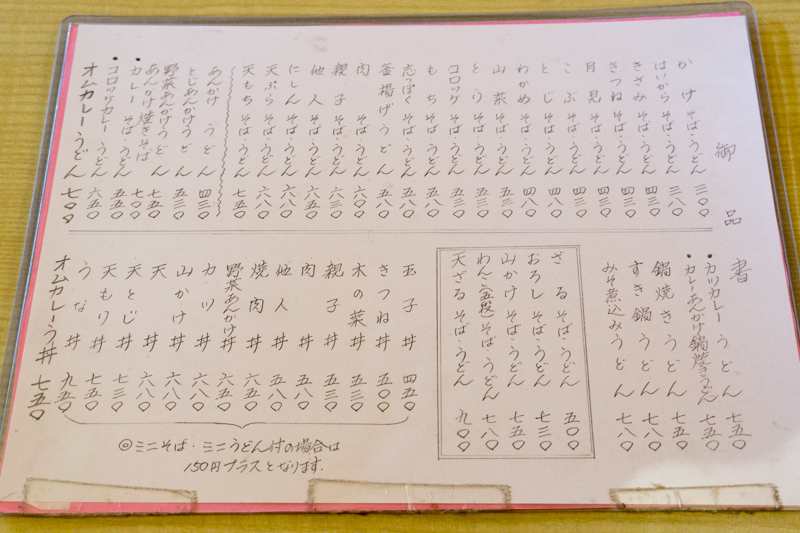 御品書
かけそば・うどん 三〇〇
はいからそば・うどん 三八〇
きざみそば・うどん 四三〇
きつねそば・うどん 四三〇
月見そば・うどん 四三〇
こぶそば・うどん 四三〇
とじそば・うどん 四八〇
わかめそば・うどん 四八〇
山菜そば・うどん 五三〇
とりそば・うどん 五八〇
コロッケそば・うどん 五三〇
もちそば・うどん 五八〇
志っぽくそば・うどん 五八〇
釜揚げうどん 五八〇
肉そば・うどん 六三〇
親子そば・うどん 六三〇
他人そば・うどん 六五〇
にしんそば・うどん 六八〇
天ぷらそば・うどん 六八〇
天もちそば・うどん 七五〇
あんかけうどん 四三〇
とじあんかけうどん 五三〇
野菜あんかけうどん 七五〇
あんかけ焼きそば 七〇〇
・カレーそば・うどん 五五〇
・コロッケカレーうどん 六五〇
オムカレーうどん 七〇〇
・カツカレーうどん 七五〇
・カレーあんかけ鍋焼きうどん 七五〇
鍋焼きうどん 七五〇
すき鍋うどん 七八〇
みそ煮込みうどん 七八〇
ざるそば・うどん 五〇〇
おろしそば・うどん 七三〇
山かけそば・うどん 七五〇
わんこ(五段)そば・うどん 七八〇
天ざるそば・うどん 九〇〇
玉子丼 四五〇
きつね丼 五〇〇
木の葉丼 五三〇
親子丼 五三〇
肉丼 五八〇
他人丼 五八〇
焼肉丼 六五〇
野菜あんかけ丼 六五〇
カツ丼 六八〇
山かけ丼 六八〇
天丼 六八〇
天とじ丼 七三〇
天もり丼 七五〇
うな丼 九五〇
オムカレーう丼 七五〇
◎ミニそば・ミニうどん付の場合は
150円プラスとなります。